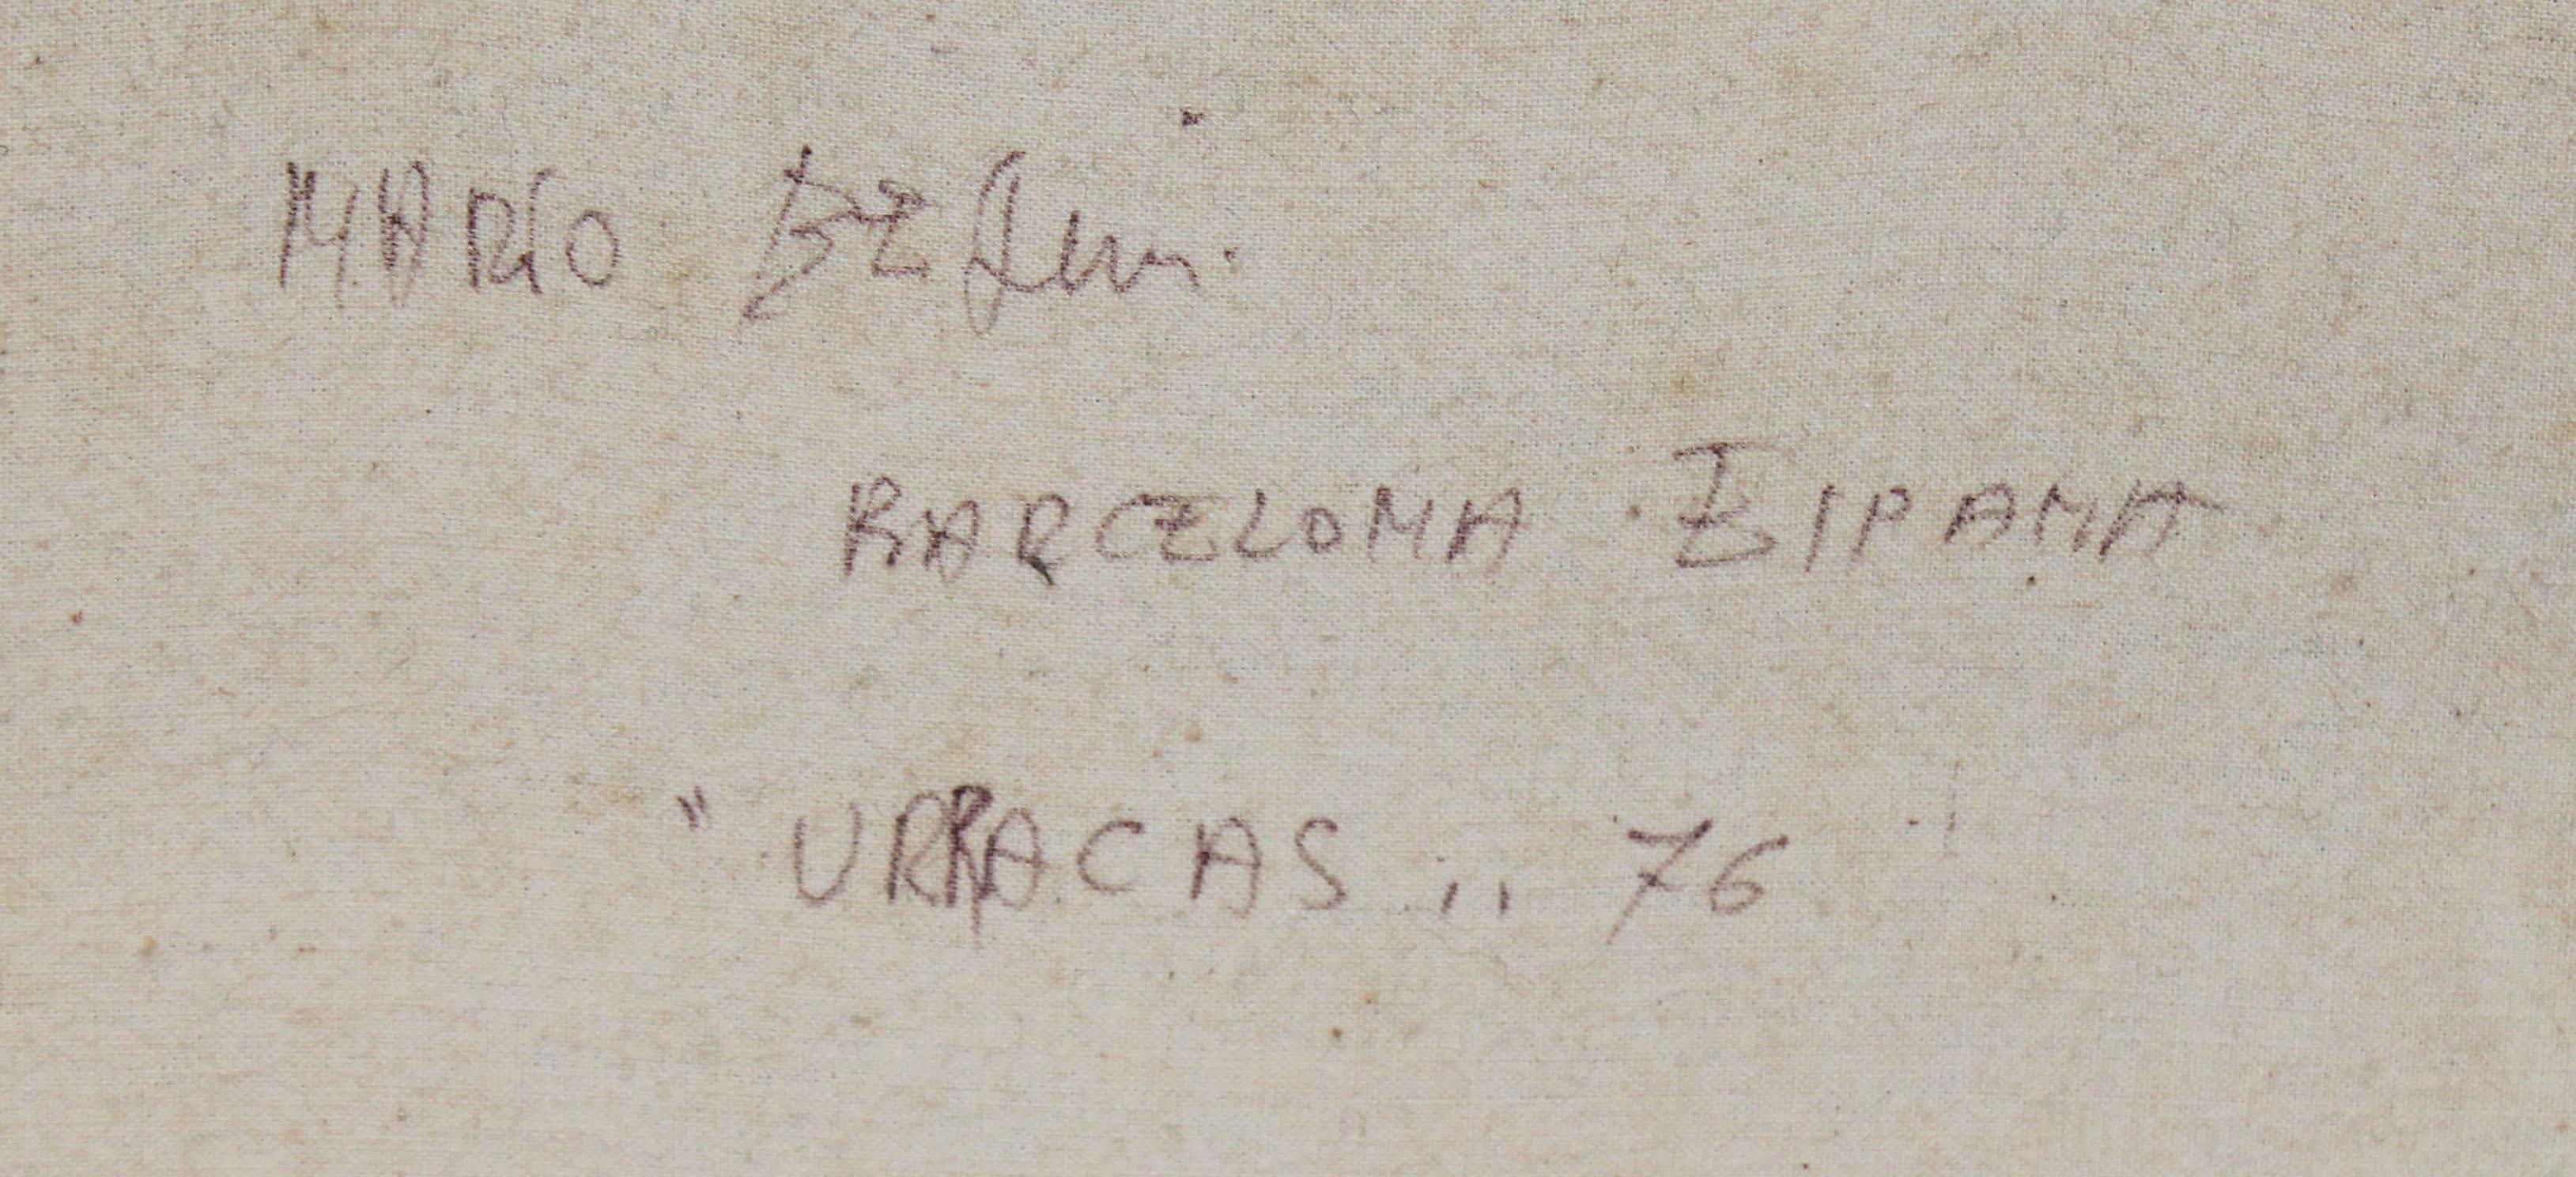 MARIO
BARCELONA ESPAÑA
" URRACAS „ 76